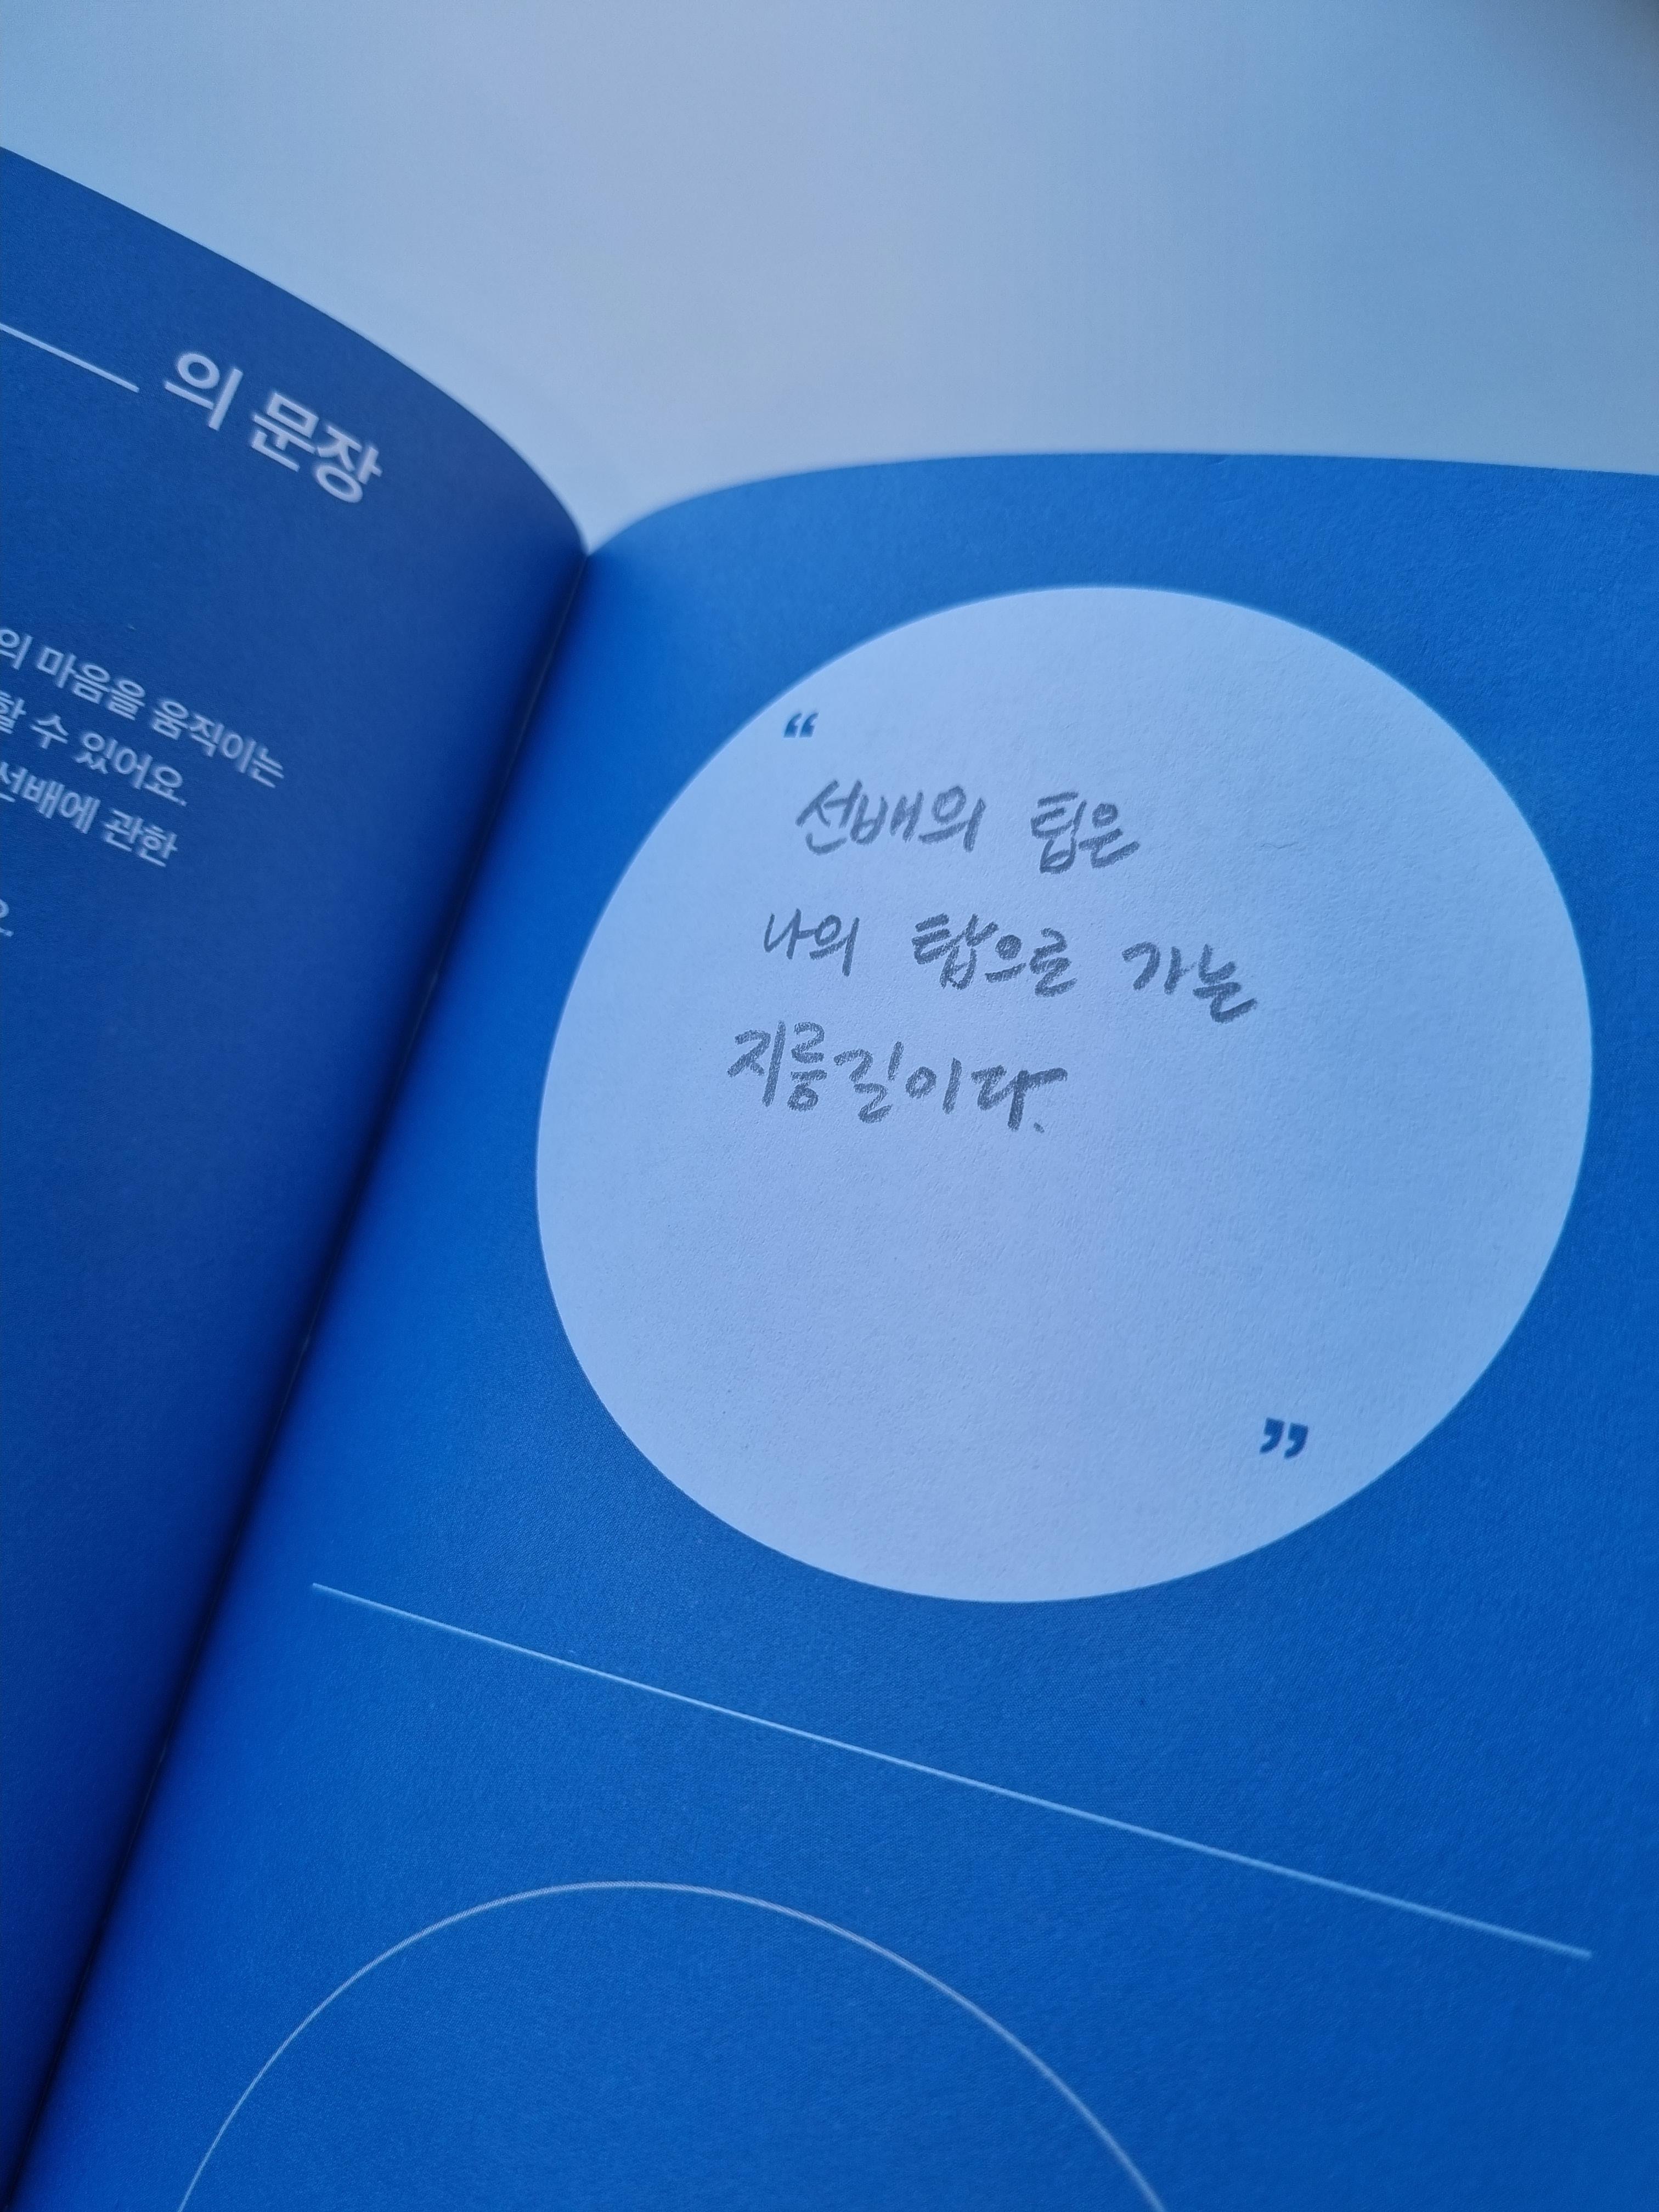 의 문장
의 마음을 움직이는
할 수 있어요.
선배에 관한
요.
“
선배의 팁은
나의 탑으로 가는
지릉길이다.
”